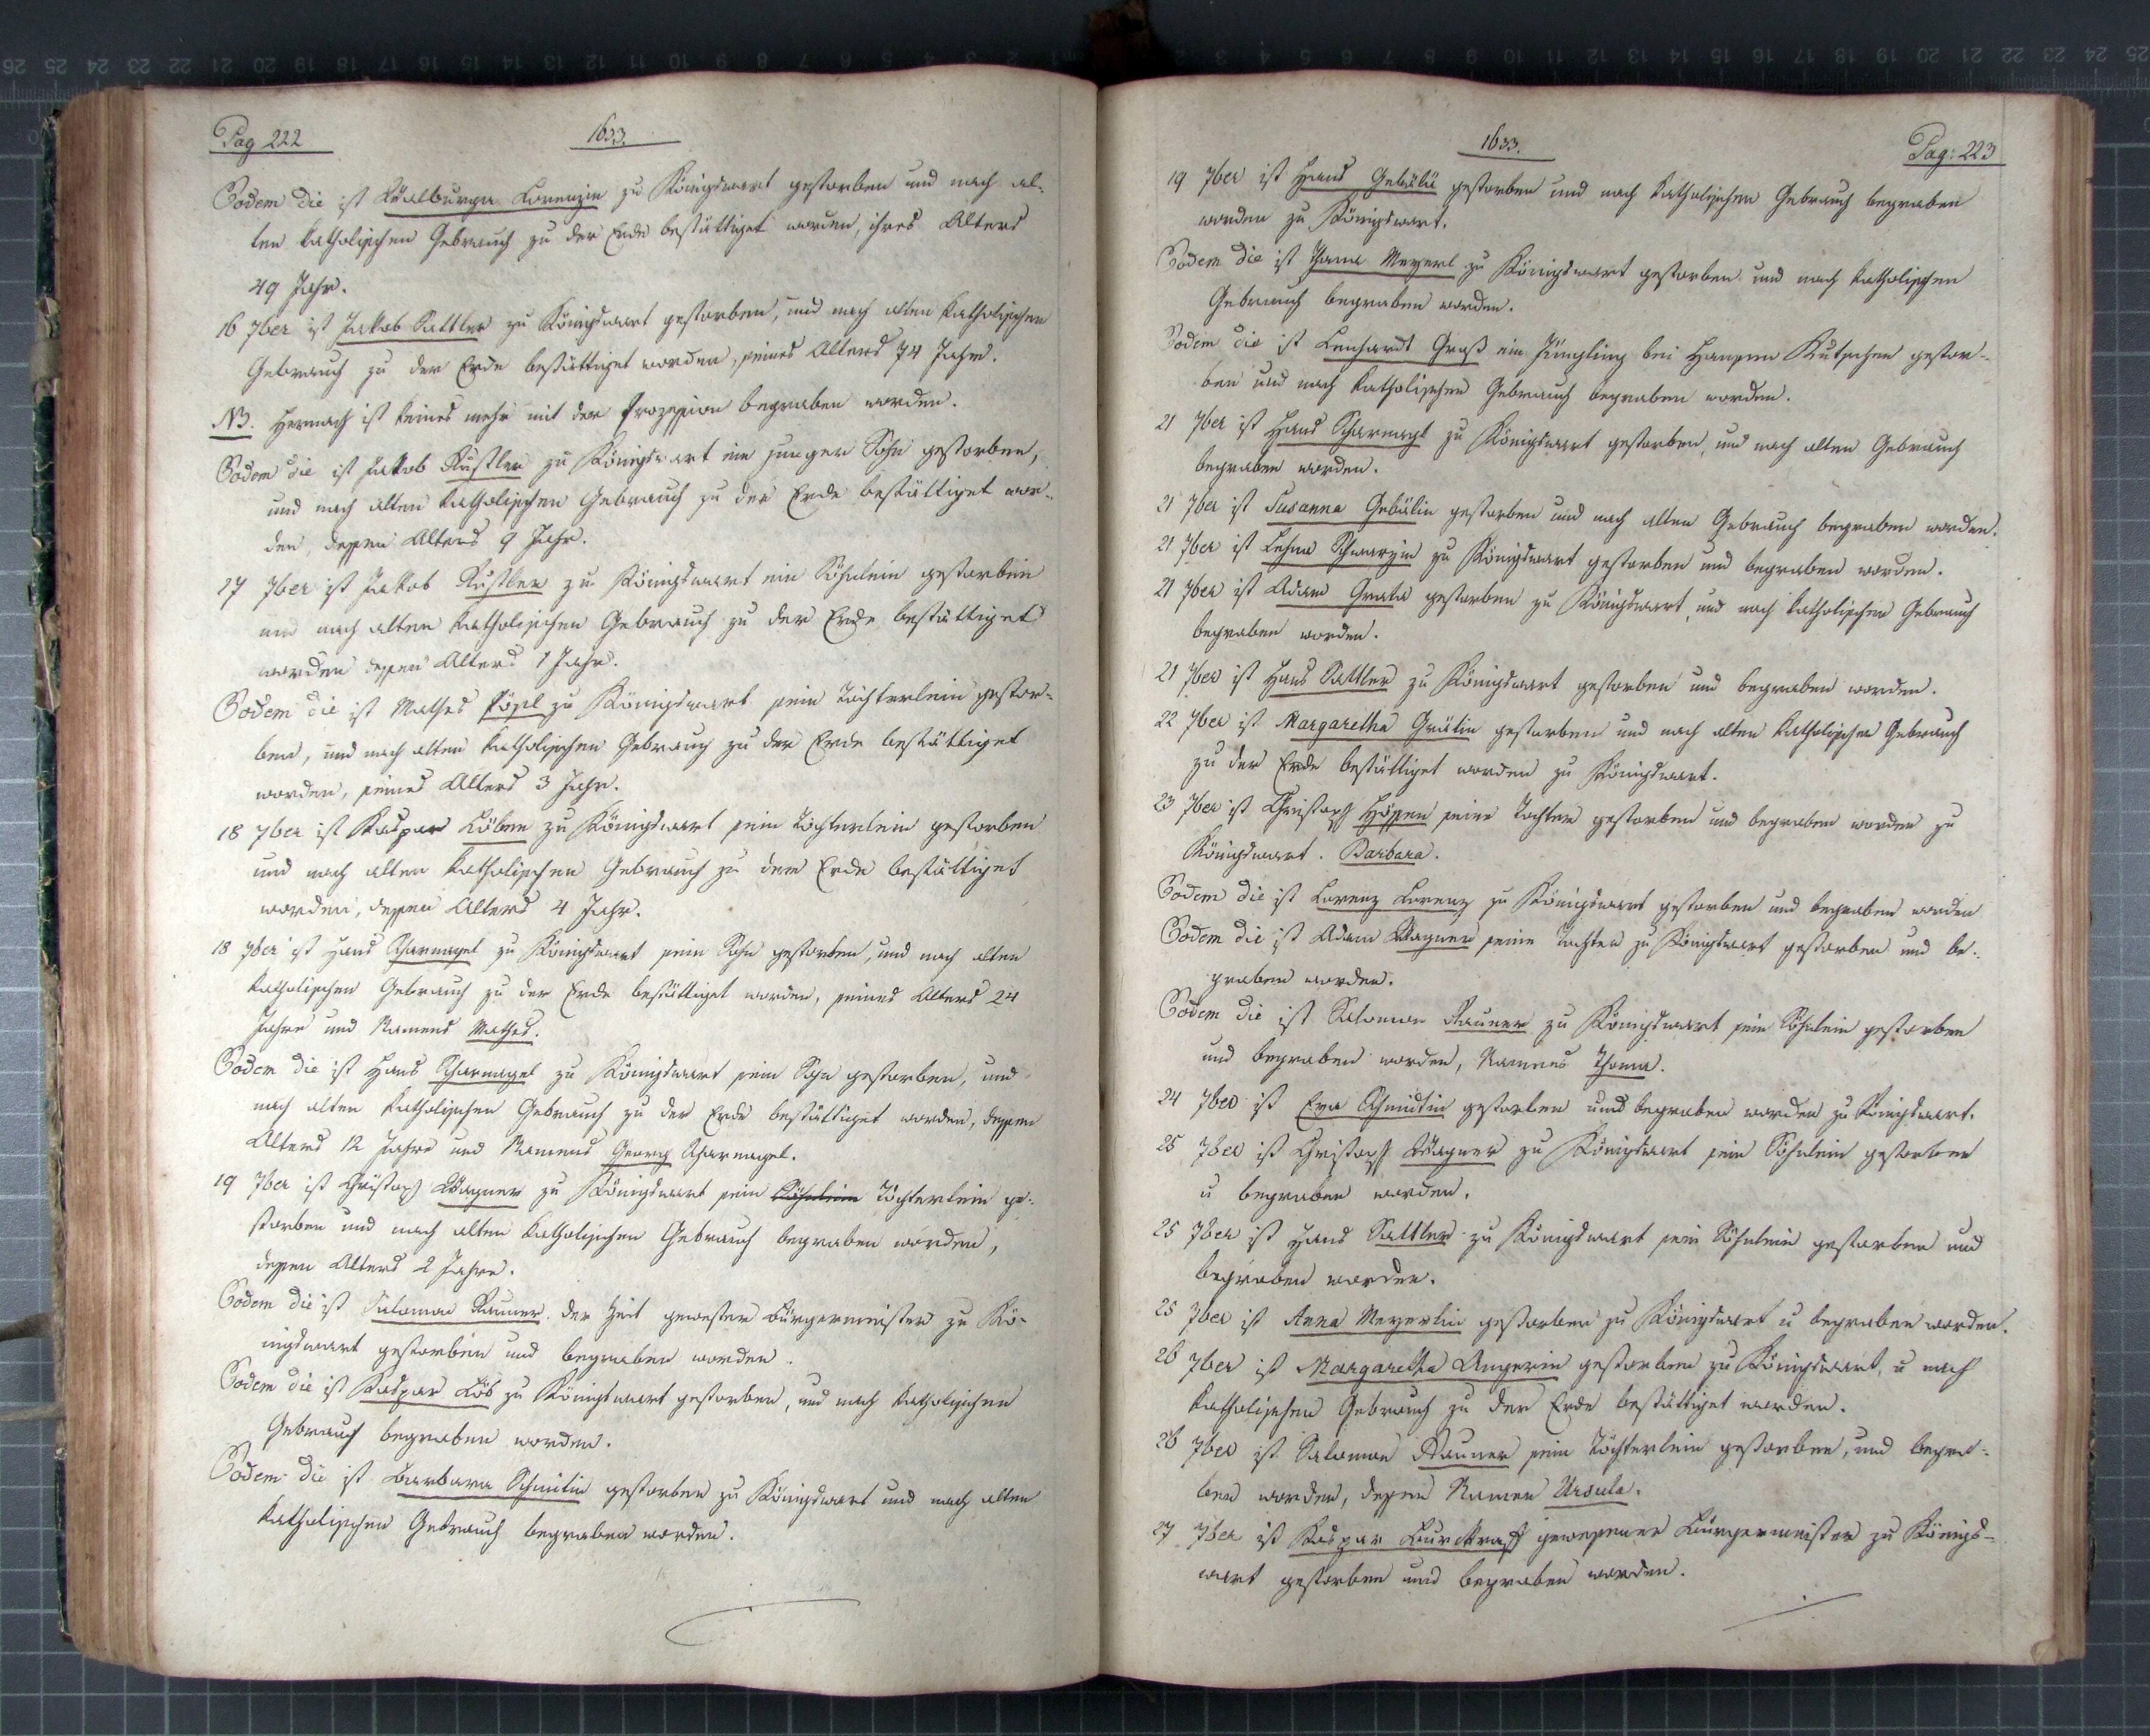 Pag 222
1633.
Eodem die ist Wallburga Lorenzin zu Königswart gestorben und nach al-
ten katholischen Gebrauch zu der Erde bestättiget worden, ihres Alters
49 Jahr.
16 7ber ist Jakob Sattler zu Königswart gestorben, und nach alten katholischen
Gebrauch zu der Erde bestättiget worden, seines Alters 74 Jahre.
NB. Hernach ist keines mehr mit der Prozession begraben worden.
Eodem die ist Jakob zu Königswart ein junger Sohn gestorben,
und nach alten katholischen Gebrauch zu der Erde bestättiget wor-
den, dessen Alters 9 Jahr.
17 7ber ist Jakob zu Königswart ein Söhnlein gestorben
und nach alten katholischen Gebrauch zu der Erde bestättiget
worden dessen Alters 1 Jahr.
Eodem die ist Mathes Pöpl zu Königswart sein Töchterlein gestor-
ben, und nach alten katholischen Gebrauch zu der Erde bestättiget
worden, seines Alters 3 Jahr.
18 7ber ist Kaspar Löben zu Königswart sein Töchterlein gestorben
und nach alten katholischen Gebrauch zu der Erde bestättiget
worden, dessen Alters 4 Jahr.
18 7ber ist Hans Scharnagel zu Königswart sein Sohn gestorben, und nach alten
katholischen Gebrauch zu der Erde bestättiget worden, seines Alters 24
Jahre und Namens Mathes.
Eodem die ist Hans Scharnagel zu Königswart sein Sohn gestorben, und
nach alten katholischen Gebrauch zu der Erde bestättiget worden, dessen
Alters 12 Jahre und Namens Georg Scharnagel.
19 7ber ist Christoph Wagner zu Königswart sein Söhnlein Töchterlein ge-
storben und nach alten katholischen Gebrauch begraben worden,
dessen Alters 2 Jahre.
Eodem die ist Salomon Rauner der Zeit gewester Bürgermeister zu Kö-
nigswart gestorben und begraben worden.
Eodem die ist Kaspar Löb zu Königswart gestorben, und nach katholischen
Gebrauch begraben worden.
Eodem die ist Barbara Schmitin gestorben zu Königswart und nach alten
katholischen Gebrauch begraben worden.
1633.
Pag: 223
19 7ber ist Hans gestorben und nach katholischen Gebrauch begraben
worden zu Königswart.
Eodem die ist Thoma Meyerl zu Königswart gestorben und nach katholischen
Gebrauch begraben worden.
Eodem die ist Lenhardt Groß ein Jüngling bei Hansen Kutschen gestor-
ben und nach katholischen Gebrauch begraben worden.
21 7ber ist Hans Scharnagl zu Königswart gestorben, und nach alten Gebrauch
begraben worden.
21 7ber ist Susanna gestorben und nach alten Gebrauch begraben worden.
21 7ber ist zu Königswart gestorben und begraben worden.
21 7ber ist Adam gestorben zu Königswart, und nach katholischen Gebrauch
begraben worden.
21 7ber ist Hans Sattler zu Königswart gestorben und begraben worden.
22 7ber ist Margaretha Grätin gestorben und nach alten katholischen Gebrauch
zu der Erde bestättiget worden zu Königswart.
23 7ber ist Christoph seine Tochter gestorben und begraben worden zu
Königswart. Barbara.
Eodem die ist Lorenz Lorenz zu Königswart gestorben und begraben worden
Eodem die ist Adam Wagner seine Tochter zu Königswart gestorben und be-
graben worden.
Eodem die ist Salomon Rauner zu Königswart sein Söhnlein gestorben
und begraben worden, Namens Thoma.
24 7ber ist Eva Schmidtin gestorben und begraben worden zu Königswart.
25 7ber ist Christoph Wagner zu Königswart sein Söhnlein gestorben
u begraben worden.
25 7ber ist Hans Sattler zu Königswart sein Söhnlein gestorben und
begraben worden.
25 7ber ist Anna Meyerlin gestorben zu Königswart u begraben worden.
26 7ber ist Margaretha Ungerin gestorben zu Königswart, u nach
katholischen Gebrauch zu der Erde bestättiget worden.
26 7ber ist Salomon Rauner sein Töchterlein gestorben, und begra-
ben worden, dessen Namen Ursula.
27 7ber ist Kaspar gewesener Bürgermeister zu Königs-
wart gestorben und begraben worden.